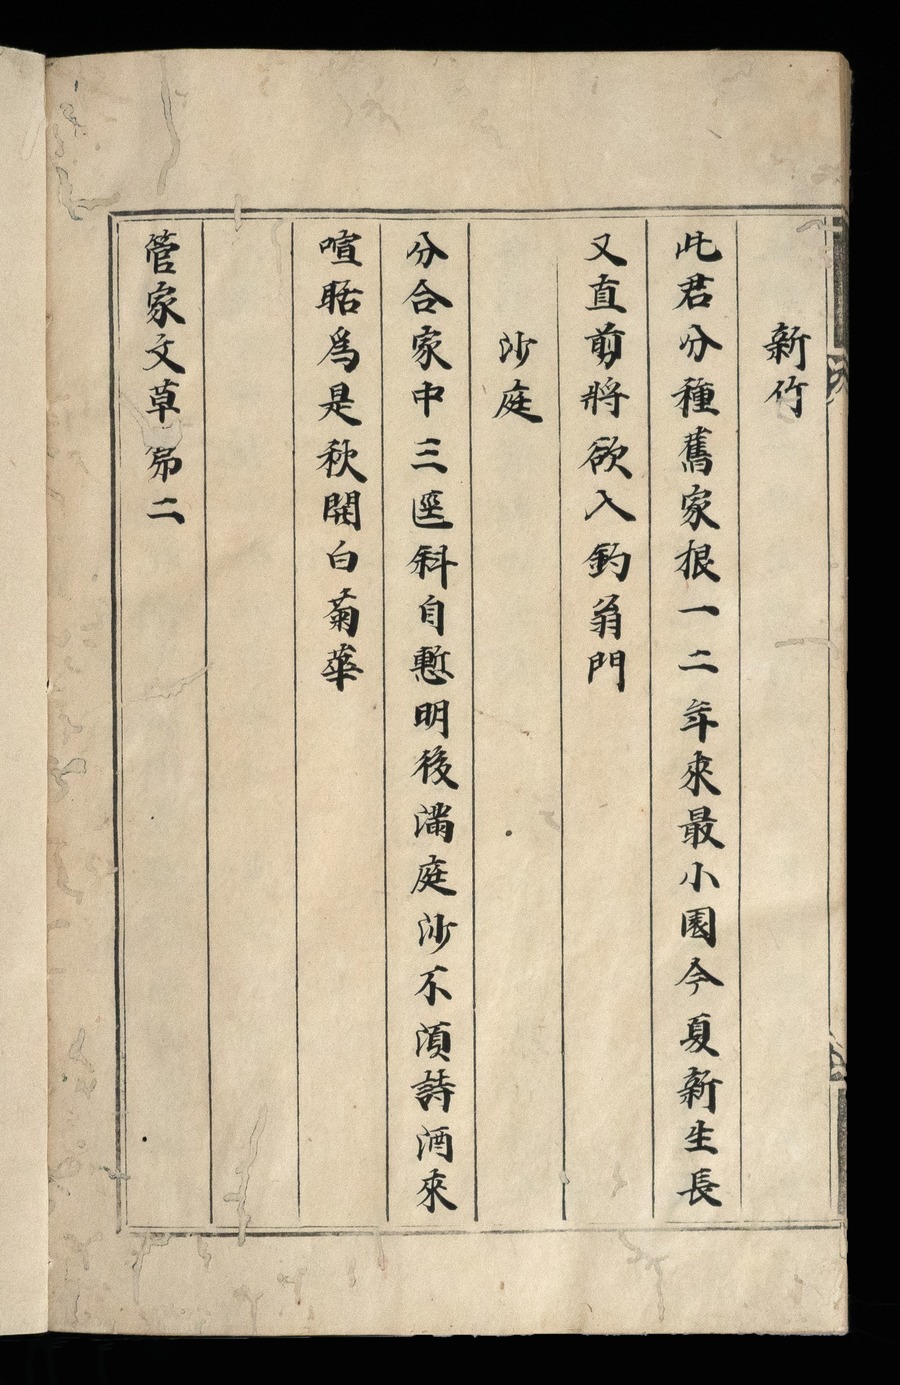 新竹
此君分種舊家根一二年來最小園今夏新生長
又直剪將欲入釣翁門
沙庭
分合家中三逕斜自慙明後滿庭沙不須詩酒來
喧聒爲是秋開白菊華
菅家文草第二